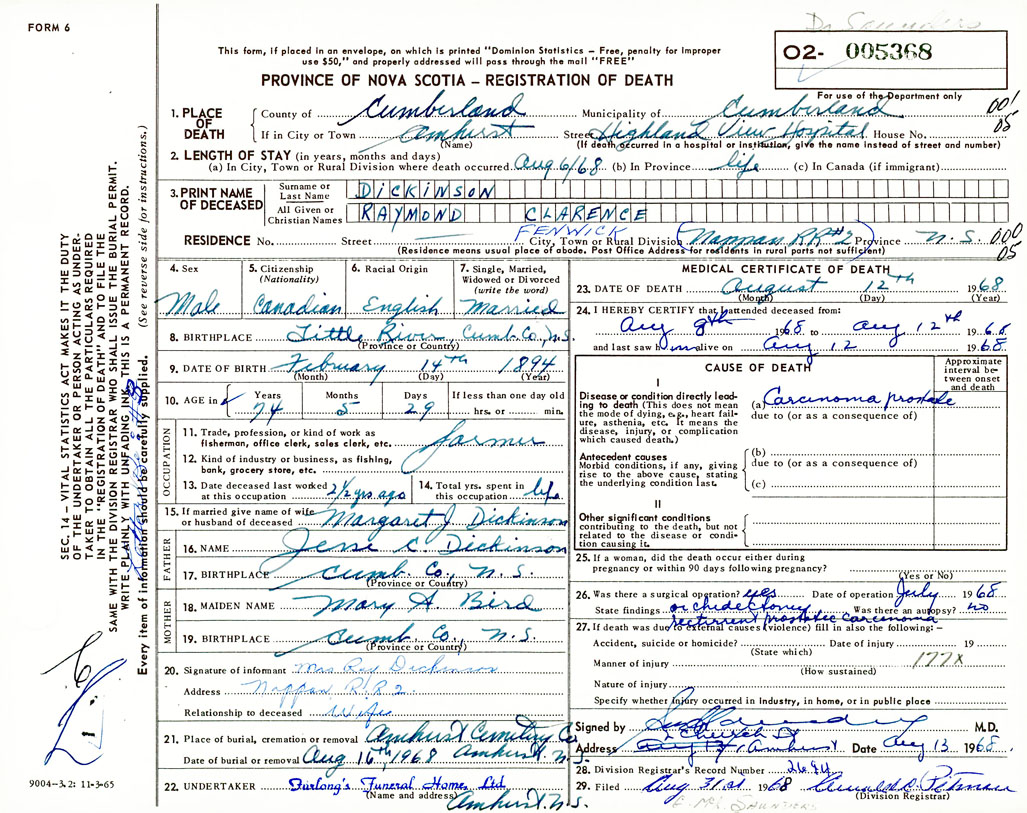 FORM 6
Dr Saunders
This form, if placed in an envelope, on which is printed "Dominion Statistics – Free, penalty for improper
use $50," and properly addressed will pass through the mail "FREE"
O2- 005368
PROVINCE OF NOVA SCOTIA – REGISTRATION OF DEATH
For use of the Department only
001
05
1. PLACE OF DEATH
County of Cumberland Municipality of Cumberland
If in City or Town Amherst Street Highland View Hospital House No.
(Name) (If death occurred in a hospital or institution, give the name instead of street and number)
2. LENGTH OF STAY (in years, months and days)
(a) In City, Town or Rural Division where death occurred Aug 6/68 (b) In Province life (c) In Canada (if immigrant)
3. PRINT NAME OF DECEASED
Surname or Last Name DICKINSON
All Given or Christian Names RAYMOND CLARENCE
FENWICK
RESIDENCE No. Street City, Town or Rural Division (Nappan RR#2) Province N.S.
000
05
(Residence means usual place of abode. Post Office Address for residents in rural parts not sufficient)
4. Sex Male
5. Citizenship (Nationality) Canadian
6. Racial Origin English
7. Single, Married, Widowed or Divorced (write the word) Married
8. BIRTHPLACE Little River, Cumb. Co., N.S.
(Province or Country)
9. DATE OF BIRTH February 14th 1894
(Month) (Day) (Year)
10. AGE in Years 74 Months 5 Days 29 If less than one day old hrs. or min.
OCCUPATION
11. Trade, profession or kind of work as
fisherman, office clerk, sales clerk, etc. farmer
12. Kind of industry or business, as fishing,
bank, grocery store, etc.
13. Date deceased last worked
at this occupation 2½ yrs. ago
14. Total yrs. spent in
this occupation life
15. If married give name of wife
or husband of deceased Margaret J. Dickinson
FATHER
16. NAME Jesse C. Dickinson
17. BIRTHPLACE Cumb. Co., N.S.
(Province or Country)
MOTHER
18. MAIDEN NAME Mary A. Bird
19. BIRTHPLACE Cumb Co., N.S.
(Province or Country)
20. Signature of informant Mrs Ray Dickinson
Address Nappan R.R.2.
Relationship to deceased Wife
21. Place of burial, cremation or removal Amherst Cemetery Co
Date of burial or removal Aug 16th, 1968 Amherst. N.S.
22. UNDERTAKER Furlong's Funeral Home, Ltd.
(Name and address) Amherst. N.S.
MEDICAL CERTIFICATE OF DEATH
23. DATE OF DEATH August 12th 1968
(Month) (Day) (Year)
24. I HEREBY CERTIFY that I attended deceased from:
Aug 8th 1968 to Aug 12th 1968
and last saw him alive on Aug 12 1968.
CAUSE OF DEATH
Approximate interval between onset and death
I
Disease or condition directly leading to death (This does not
mean the mode of dying, e.g., heart failure, asthenia, etc. It means the
disease, injury, or complication
which caused death.)
(a) Carcinoma prostate
due to (or as a consequence of)
Antecedent causes
Morbid conditions, if any, giving
rise to the above cause, stating
the underlying condition last.
(b)
due to (or as a consequence of)
(c)
II
Other significant conditions
contributing to the death, but not
related to the disease or condition
causing it.
25. If a woman, did the death occur either during
pregnancy or within 90 days following pregnancy?
(Yes or No)
26. Was there a surgical operation? yes Date of operation July 1968
State findings orchidectomy Was there an autopsy? no
recurrent prostatic carcinoma
27. If death was due to external causes (violence) fill in also the following: –
Accident, suicide or homicide? Date of injury 19
(State which)
Manner of injury 177X
(How sustained)
Nature of injury
Specify whether injury occurred in industry, in home, or in public place
Signed by M.D.
Church St
Address Amherst Date Aug 13 1968
28. Division Registrar's Record Number
29. Filed Aug 31st 1968
(Division Registrar)
SAUNDERS
SEC. 14 – VITAL STATISTICS ACT MAKES IT THE DUTY
OF THE UNDERTAKER OR PERSON ACTING AS UNDERTAKER
TO OBTAIN ALL THE PARTICULARS REQUIRED
IN THE "REGISTRATION OF DEATH" AND TO FILE THE
SAME WITH THE DIVISION REGISTRAR WHO SHALL ISSUE THE BURIAL PERMIT.
WRITE PLAINLY WITH UNFADING INK. THIS IS A PERMANENT RECORD.
Every item of information should be carefully supplied. (See reverse side for instructions.)
9004–3.2: 11-3-65